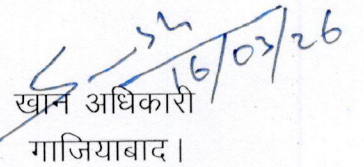 16/03/26
खान अधिकारी
गाजियाबाद।